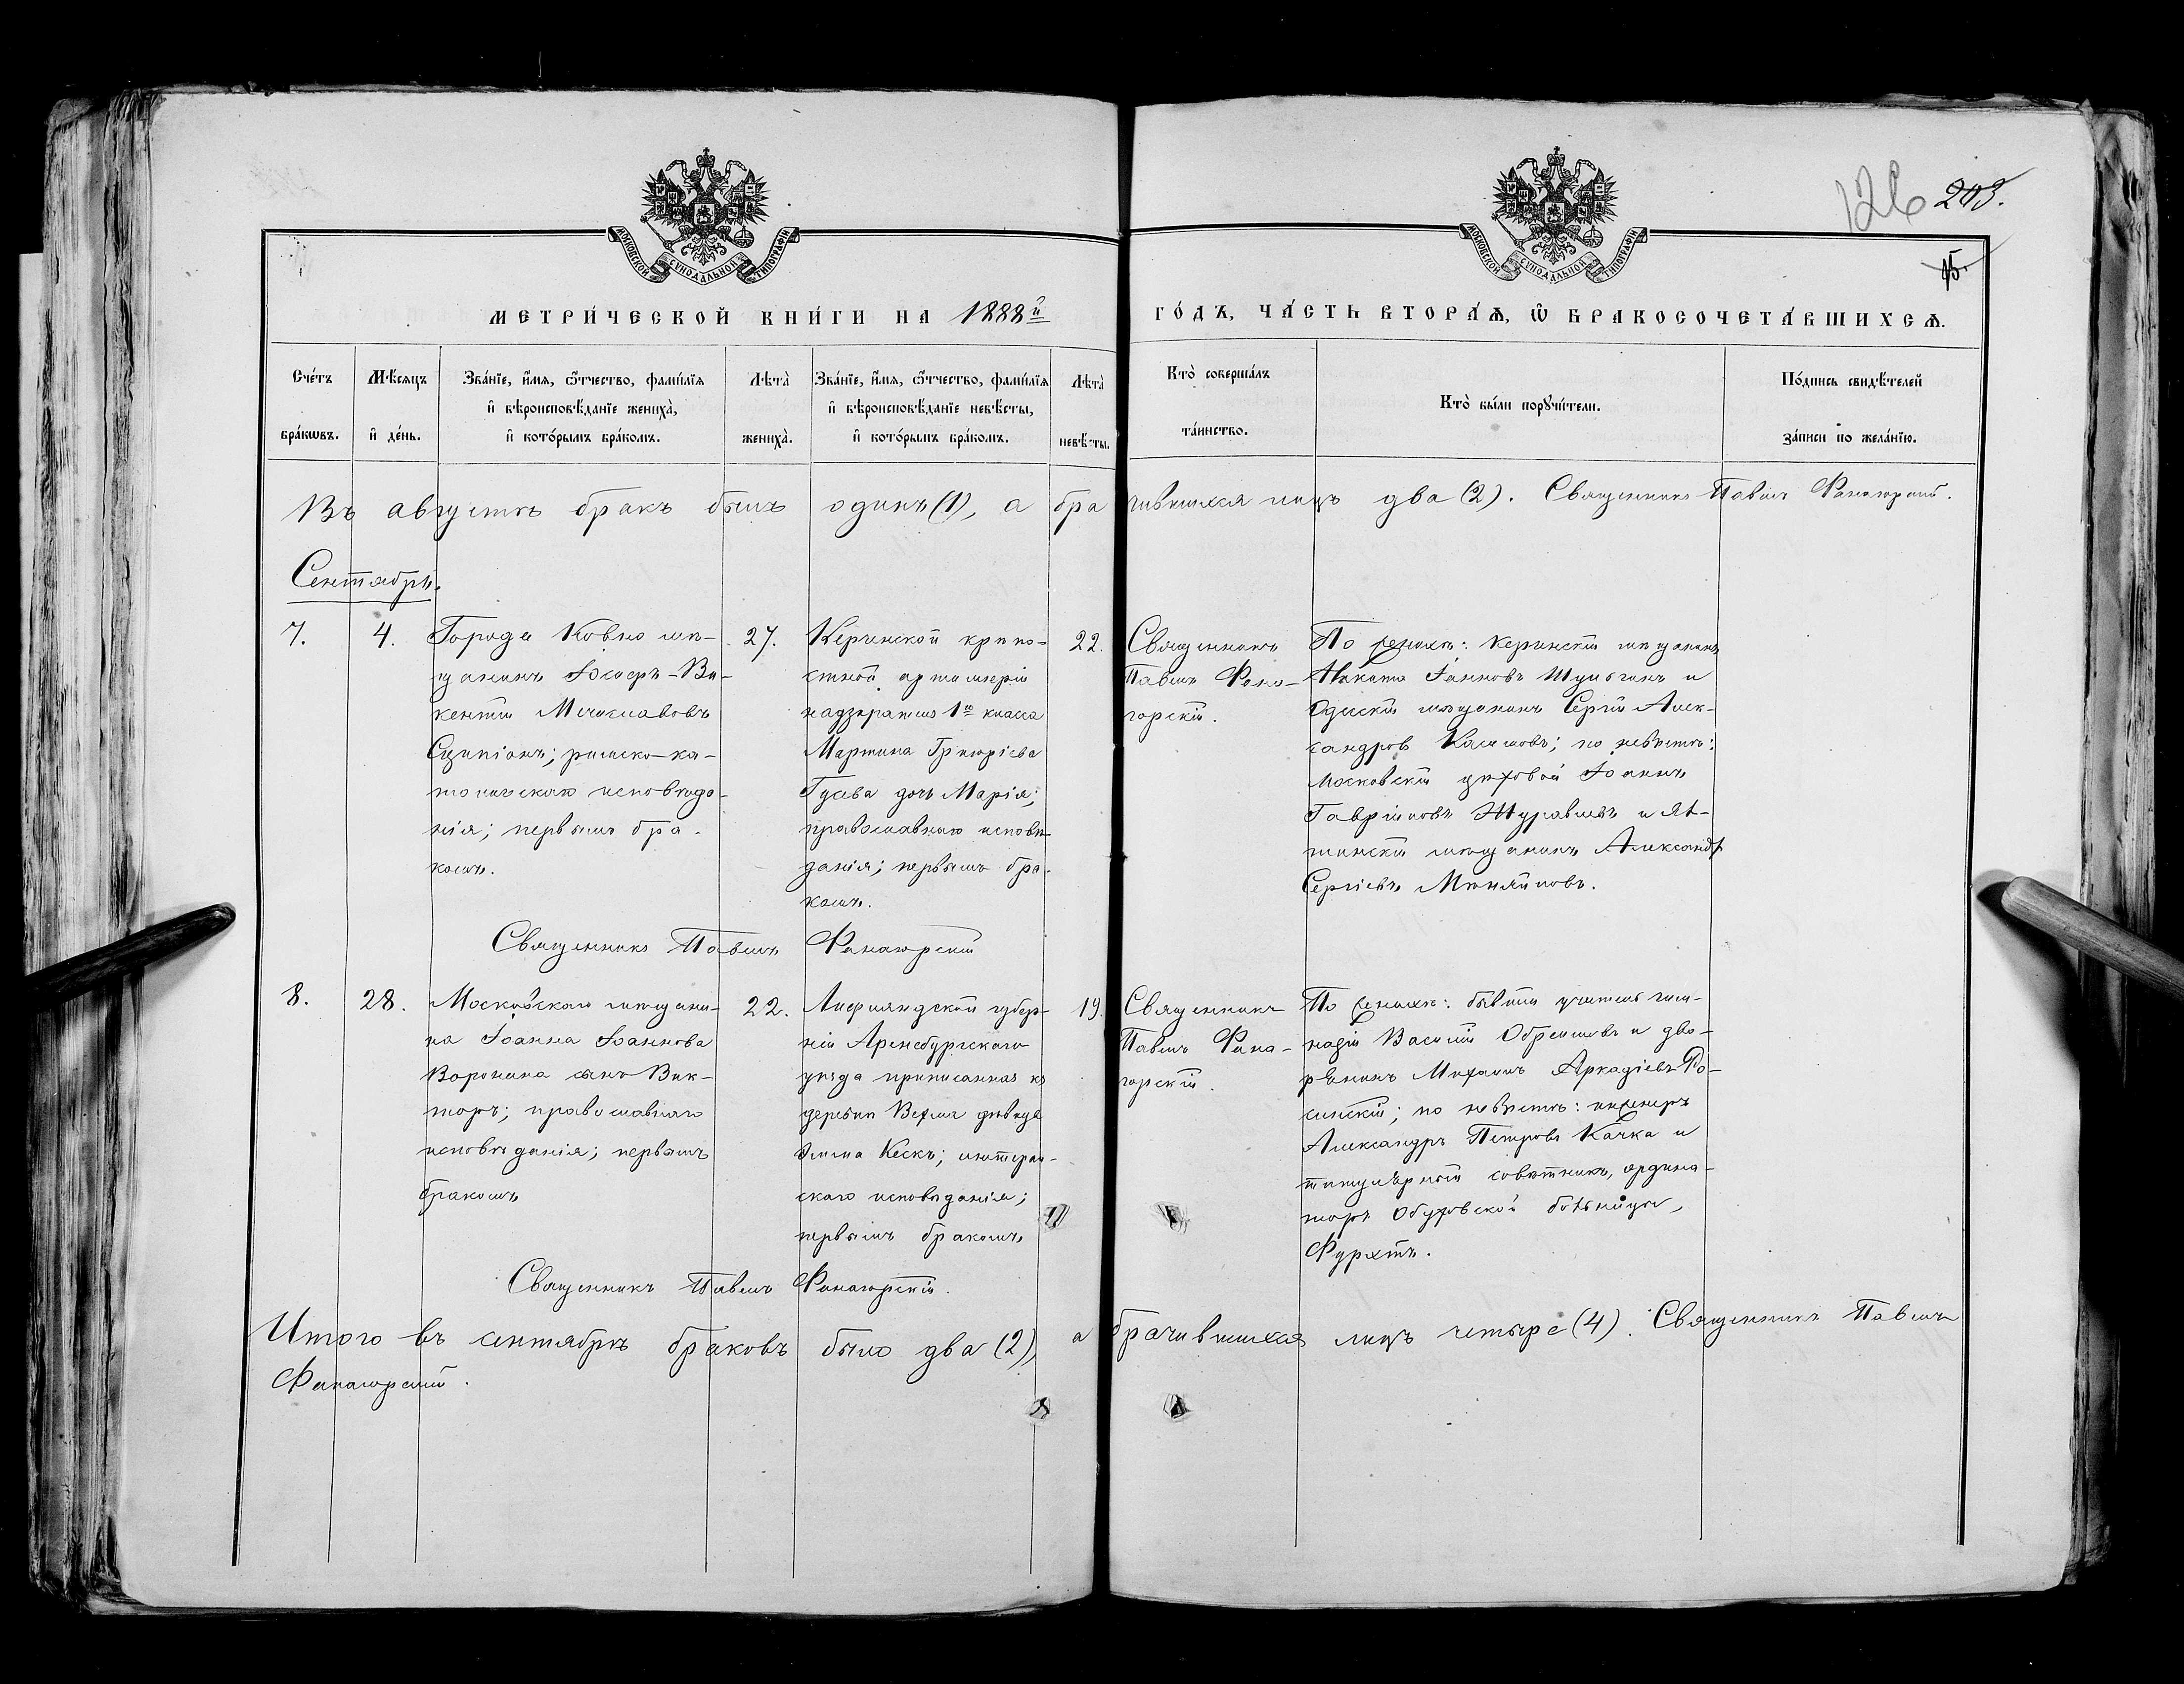 126 203.
15.
МОСКОВСКОЙ СУНОДАЛЬНОЙ ТИПОГРАФІИ
МОСКОВСКОЙ СУНОДАЛЬНОЙ ТИПОГРАФІИ
МЕТРИ́ЧЕСКОЙ КНИ́ГИ НА 1888й ГО́ДЪ, ЧА́СТЬ ВТОРА́Ѧ, Ѡ҆ БРАКОСОЧЕТА́ВШИХСѦ.
Сче́тъ
бра́кѡвъ.
Мѣ́сяцъ
и҆ де́нь.
Зва́нїе, и҆́мѧ, ѻ҆́тчество, фами́лїѧ
и҆ вѣроисповѣ́данїе жениха̀,
и҆ кото́рымъ бра́комъ.
Лѣта̀
жениха̀.
Зва́нїе, и҆́мѧ, ѻ҆́тчество, фами́лїѧ
и҆ вѣроисповѣ́данїе невѣ́сты,
и҆ кото́рымъ бра́комъ.
Лѣта̀
невѣ́сты.
Кто̀ соверша́лъ
та́инство.
Кто̀ бы́ли порꙋчи́тели.
По́дпись свидѣ́телей
за́писи по жела́нїю.
Въ августѣ бракъ былъ одинъ (1), а брачившихся лицъ два (2). Священникъ Павелъ Фанагорскій.
Сентябрь.
7.
4.
Города Ковно мѣ-
щанинъ Іосифъ-Ви-
кентій Мечиславовъ
Сципіонъ; римско-ка-
толическаго исповѣда-
нія; первымъ бра-
комъ.
27.
Керченской крѣпо-
стной артиллеріи
надзирателя 1го класса
Мартина Григоріева
Гусева дочь Марія;
православнаго исповѣ-
данія; первымъ бра-
комъ.
22.
Священникъ
Павелъ Фана-
горскій.
По женихѣ: керченскій мѣщанинъ
Іоанновъ Шульгинъ и
Одесскій мѣщанинъ Сергій Алек-
сандров ; по невѣстѣ:
Московскій цеховой Іоаннъ
Гавріиловъ Журавлевъ и Ял-
тинскій мѣщанинъ Александръ
Сергіевъ .
Священникъ Павелъ Фанагорскій
8.
28.
Московскаго мѣщани-
на Іоанна Іоаннова
Воронина сынъ Вик-
торъ; православнаго
исповѣданія; первымъ
бракомъ
22.
Лифляндской губер-
ніи Аренсбургскаго
уѣзда приписанная къ
деревнѣ дѣвица
Элина Кескъ; лютеран-
скаго исповѣданія;
первымъ бракомъ
19.
Священникъ
Павелъ Фана-
горскій.
По женихѣ: бывшій учитель гим-
назіи Василій Обреимовъ и дво-
рянинъ Михаилъ Аркадіевъ Ро-
синскій; по невѣстѣ: инженеръ
Александръ Петровъ Качка и
титулярный совѣтникъ, ордина-
торъ Обуховской больницы,
Фурхтъ.
Священникъ Павелъ Фанагорскій.
Итого въ сентябрѣ браковъ было два (2), а брачившихся лицъ четыре (4). Священникъ Павелъ
Фанагорскій.